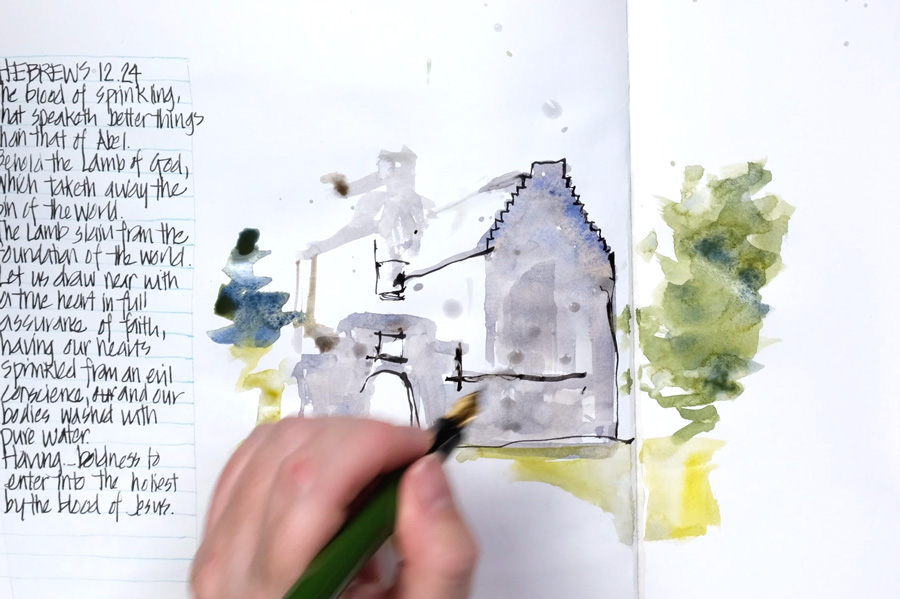 HEBREWS 12.24
he blood of sprinkling,
hat speaketh better things
han that of Abel.
Behold the Lamb of God,
which taketh away the
sin of the world.
The Lamb slain from the
foundation of the world.
Let us draw near with
a true heart in full
assurance of faith,
having our hearts
sprinkled from an evil
conscience, and our
bodies washed with
pure water.
Having boldness to
enter into the holiest
by the blood of Jesus.